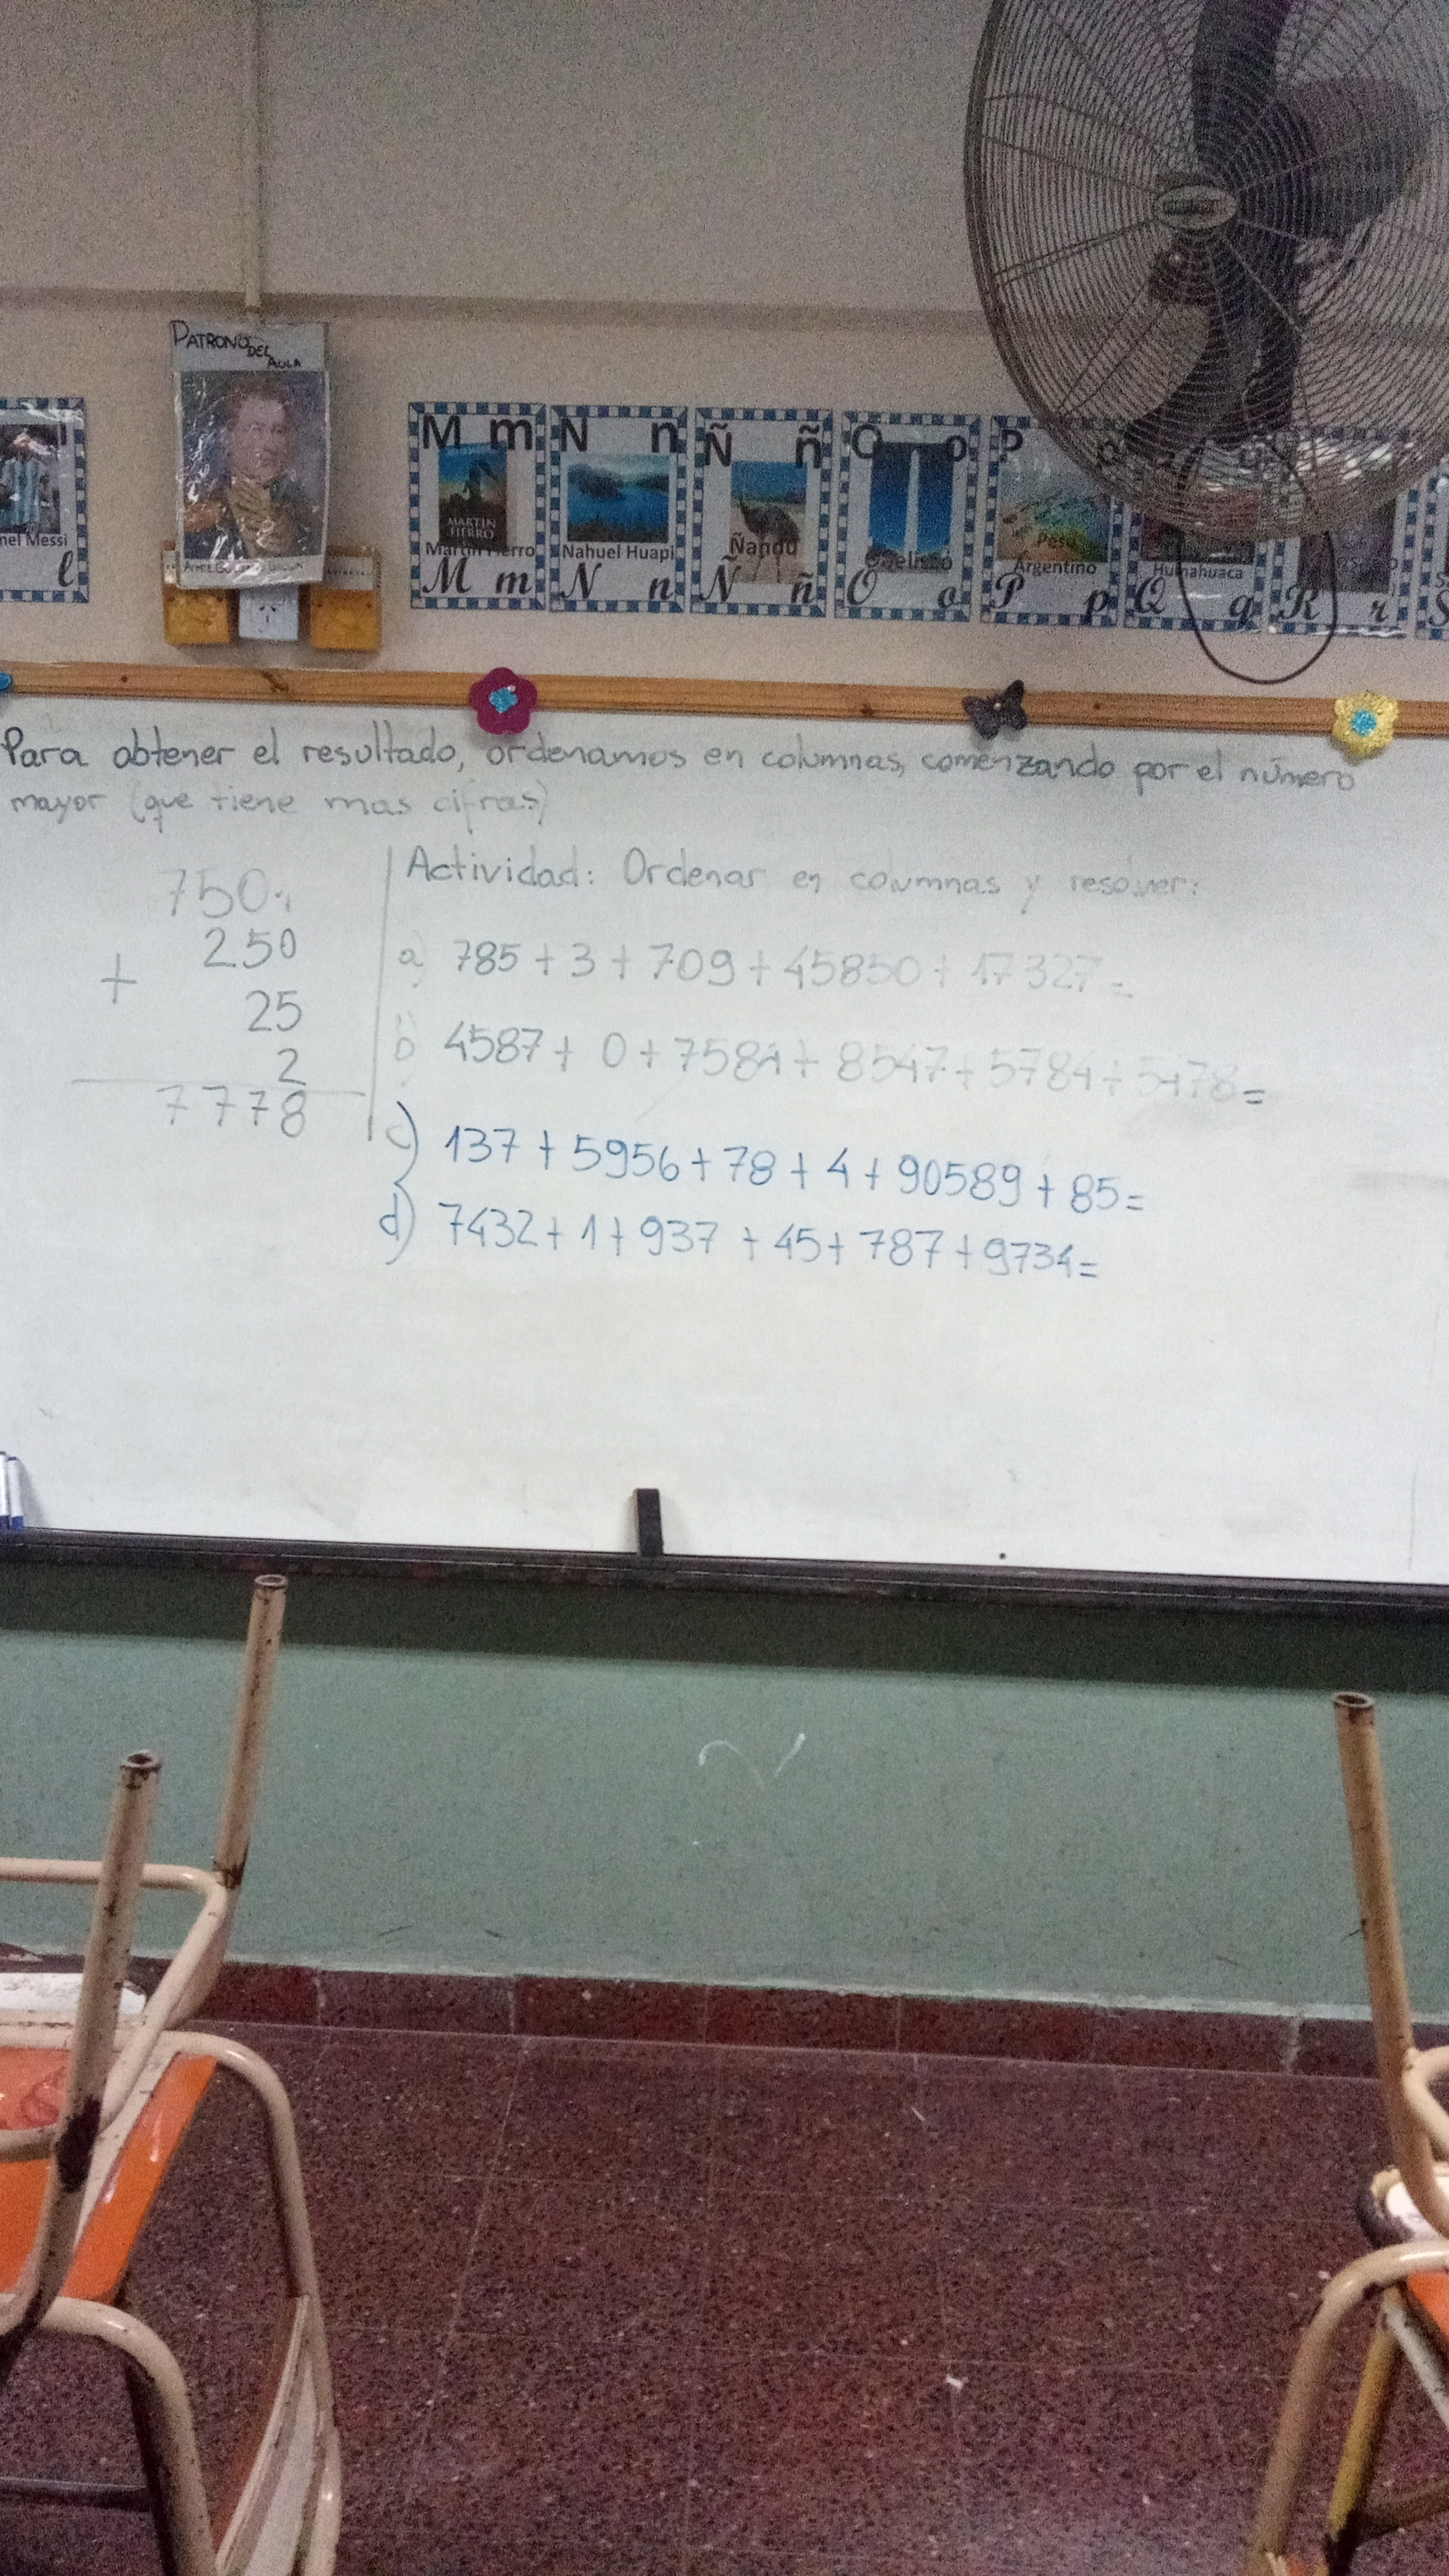 PATRONO DEL AULA
M m
MARTÍN FIERRO
Martín Fierro
M m
N n
Nahuel Huapi
N n
Ñ ñ
Ñandú
Ñ ñ
O o
Obelisco
O o
P
Peso Argentino
P p
Humahuaca
Q q
R r
S
nel Messi
l
Para obtener el resultado, ordenamos en columnas, comenzando por el número
mayor (que tiene mas cifras)
7501
250
+
25
2
7778
Actividad: Ordenar en columnas y resolver:
a) 785 + 3 + 709 + 45850 + 17327 =
b) 4587 + 0 + 7584 + 8547 + 5784 + 5478 =
c) 137 + 5956 + 78 + 4 + 90589 + 85 =
d) 7432 + 1 + 937 + 45 + 787 + 9734 =